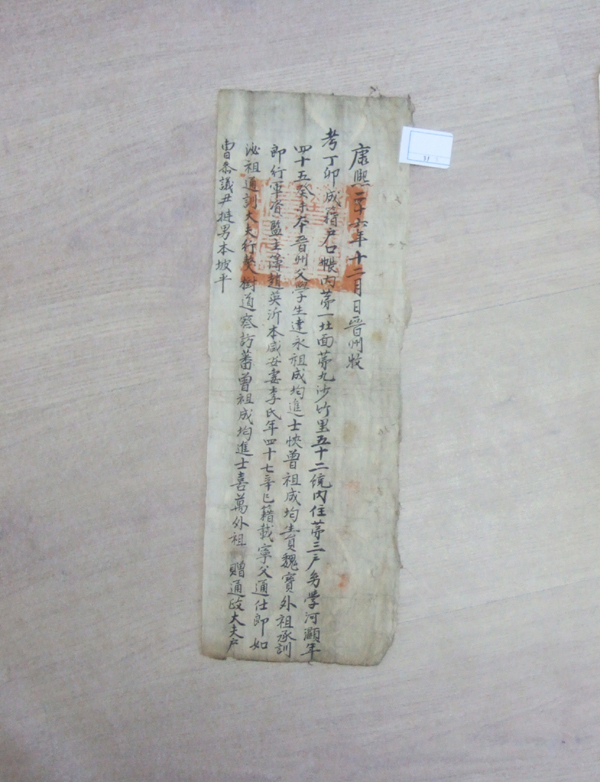 康熙二十六年十二月日晉州牧
考丁卯成籍戶口帳內苐一北面苐九沙竹里五十二統內住苐三戶幼學河灝年
四十五癸未本晉州父學生達永祖成均進士悏曾祖成均生員魏寶外祖承訓
郎行軍資監主簿趙英沂本咸安妻李氏年四十七辛巳籍載寧父通仕郎如
泌祖通訓大夫行英樹道察訪蕃曾祖成均進士喜萬外祖 贈通政大夫戶
曺叅議尹挺男本坡平